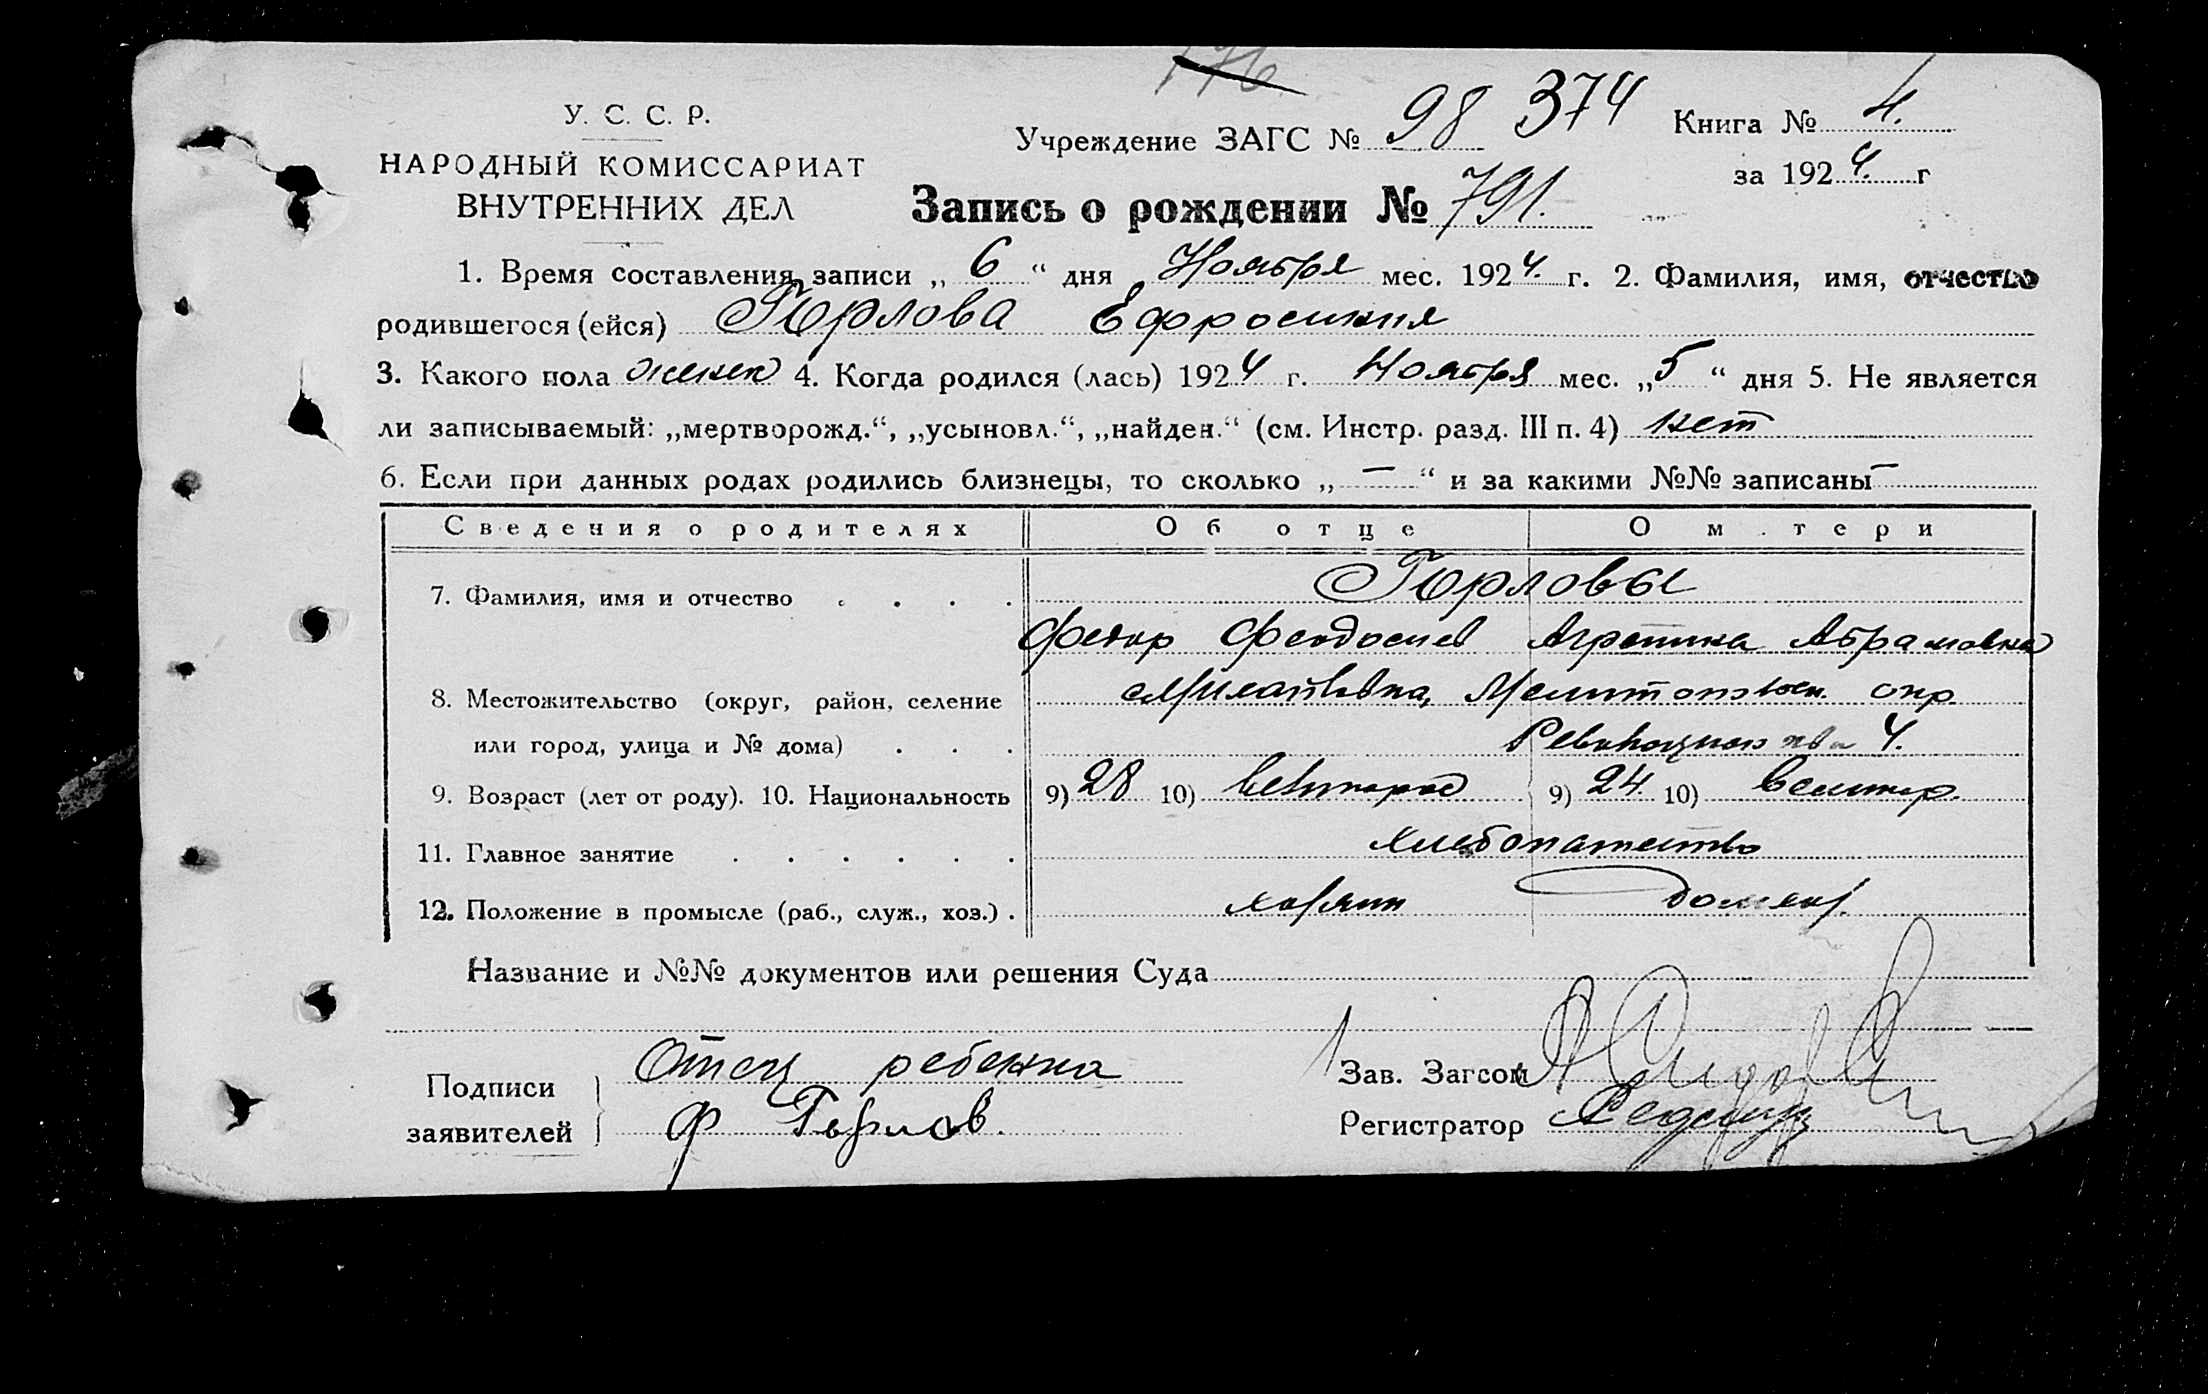 176
У. С. С. Р.
НАРОДНЫЙ КОМИССАРИАТ
ВНУТРЕННИХ ДЕЛ
Учреждение ЗАГС № 98 374 Книга № 4.
за 1924. г
Запись о рождении № 791.
1. Время составления записи „ 6 “ дня Ноября мес. 1924. г. 2. Фамилия, имя, отчество
родившегося (ейся) Горлова Ефросиния
3. Какого пола женск 4. Когда родился (лась) 1924 г. Ноября мес. „ 5 “ дня 5. Не является
ли записываемый: „мертворожд.“, „усыновл.“, „найден.“ (см. Инстр. разд. III п. 4) нет
6. Если при данных родах родились близнецы, то сколько „ — “ и за какими №№ записаны —
Сведения о родителях Об отце О м тери
7. Фамилия, имя и отчество . . . . Горловы
Федор Феодосиев Агрепина Абрамовна
8. Местожительство (округ, район, селение Мелитопольск. окр.
или город, улица и № дома) . . . 4.
9. Возраст (лет от роду). 10. Национальность 9) 28 10) великорос 9) 24. 10) великор.
11. Главное занятие . . . . . . хлебопашество
12. Положение в промысле (раб., служ., хоз.) . хозяин домхоз.
Название и №№ документов или решения Суда
Подписи заявителей
Отец ребенка
Ф Горлов.
Зав. Загсом
Регистратор